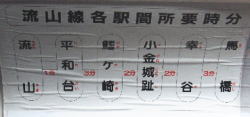 流山線各駅間所要時分
流山
平和台
鰭ヶ崎
小金城趾
幸谷
馬橋